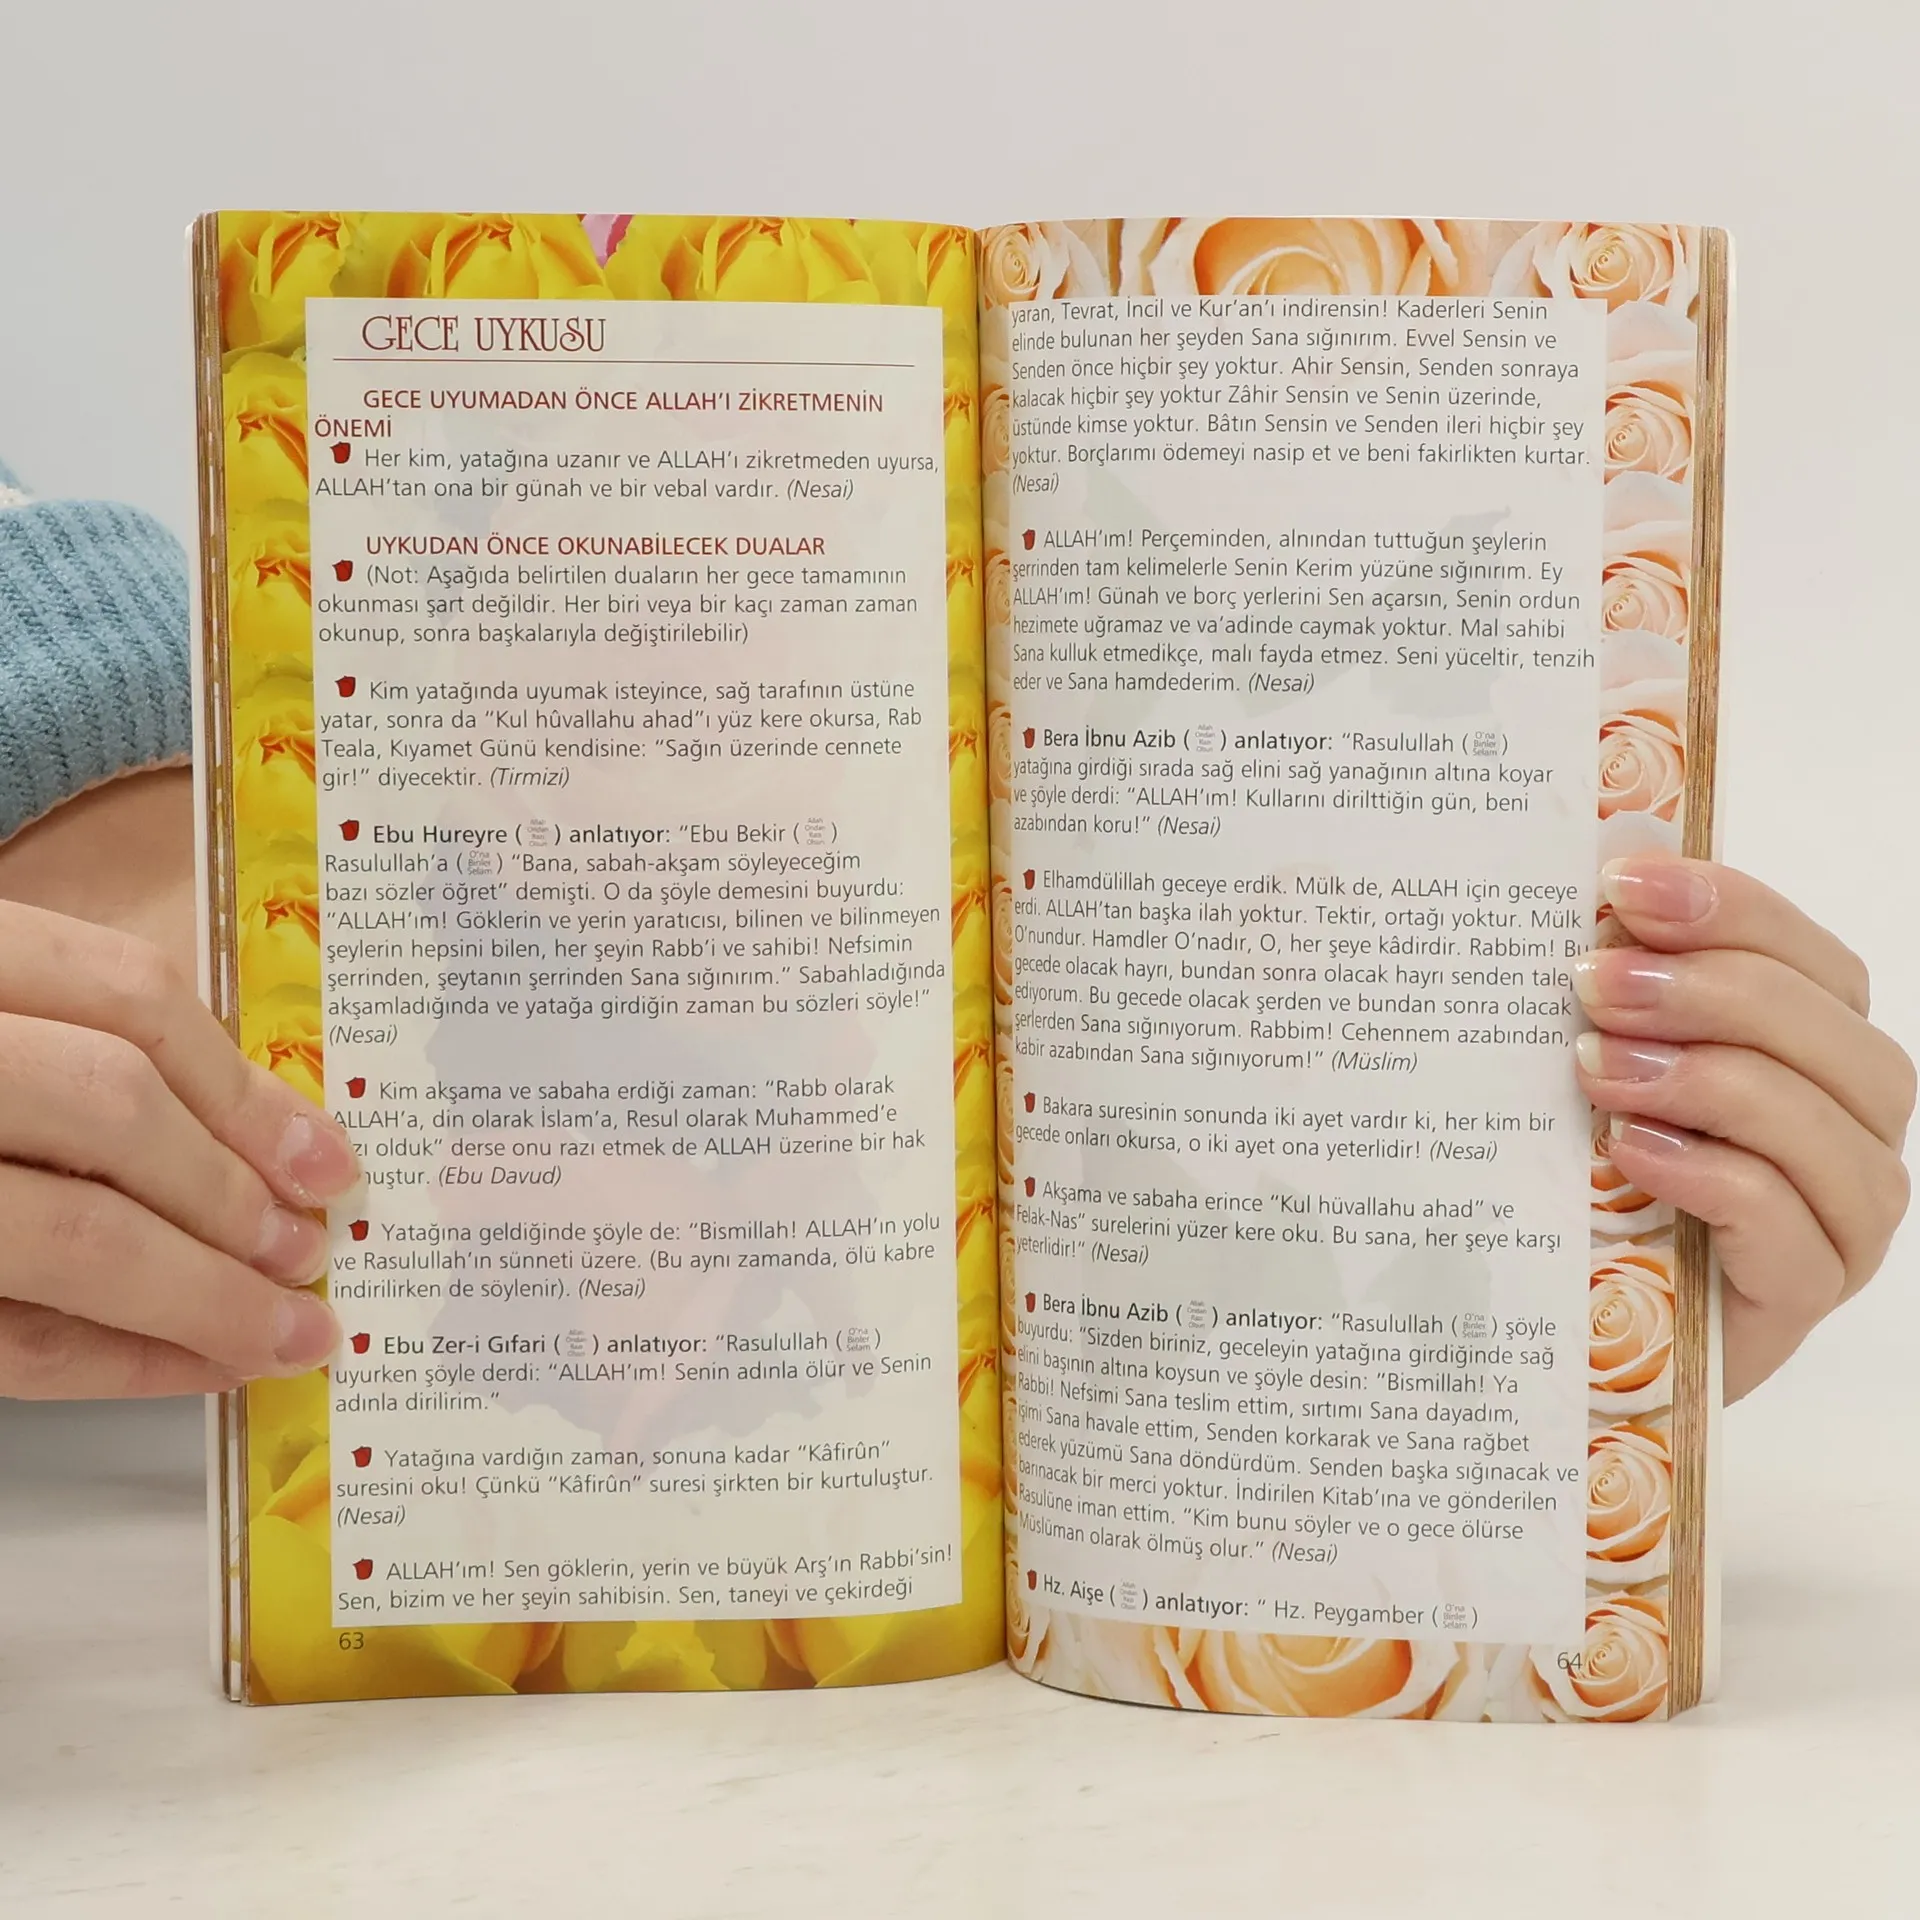 GECE UYKUSU
GECE UYUMADAN ÖNCE ALLAH'I ZİKRETMENİN
ÖNEMİ
Her kim, yatağına uzanır ve ALLAH'ı zikretmeden uyursa,
ALLAH'tan ona bir günah ve bir vebal vardır. (Nesai)
UYKUDAN ÖNCE OKUNABİLECEK DUALAR
(Not: Aşağıda belirtilen duaların her gece tamamının
okunması şart değildir. Her biri veya bir kaçı zaman zaman
okunup, sonra başkalarıyla değiştirilebilir)
Kim yatağında uyumak isteyince, sağ tarafının üstüne
yatar, sonra da "Kul hûvallahu ahad"ı yüz kere okursa, Rab
Teala, Kıyamet Günü kendisine: "Sağın üzerinde cennete
gir!" diyecektir. (Tirmizi)
Ebu Hureyre ( Allah Ondan Razı Olsun ) anlatıyor: "Ebu Bekir ( Allah Ondan Razı Olsun )
Rasulullah'a ( O'na Binler Selam ) "Bana, sabah-akşam söyleyeceğim
bazı sözler öğret" demişti. O da şöyle demesini buyurdu:
"ALLAH'ım! Göklerin ve yerin yaratıcısı, bilinen ve bilinmeyen
şeylerin hepsini bilen, her şeyin Rabb'i ve sahibi! Nefsimin
şerrinden, şeytanın şerrinden Sana sığınırım." Sabahladığında
akşamladığında ve yatağa girdiğin zaman bu sözleri söyle!"
(Nesai)
Kim akşama ve sabaha erdiği zaman: "Rabb olarak
ALLAH'a, din olarak İslam'a, Resul olarak Muhammed'e
zı olduk" derse onu razı etmek de ALLAH üzerine bir hak
muştur. (Ebu Davud)
Yatağına geldiğinde şöyle de: "Bismillah! ALLAH'ın yolu
ve Rasulullah'ın sünneti üzere. (Bu aynı zamanda, ölü kabre
indirilirken de söylenir). (Nesai)
Ebu Zer-i Gıfari ( Allah Ondan Razı Olsun ) anlatıyor: "Rasulullah ( O'na Binler Selam )
uyurken şöyle derdi: "ALLAH'ım! Senin adınla ölür ve Senin
adınla dirilirim."
Yatağına vardığın zaman, sonuna kadar "Kâfirûn"
suresini oku! Çünkü "Kâfirûn" suresi şirkten bir kurtuluştur.
(Nesai)
ALLAH'ım! Sen göklerin, yerin ve büyük Arş'ın Rabbi'sin!
Sen, bizim ve her şeyin sahibisin. Sen, taneyi ve çekirdeği
63
yaran, Tevrat, İncil ve Kur'an'ı indirensin! Kaderleri Senin
elinde bulunan her şeyden Sana sığınırım. Evvel Sensin ve
Senden önce hiçbir şey yoktur. Ahir Sensin, Senden sonraya
kalacak hiçbir şey yoktur Zâhir Sensin ve Senin üzerinde,
üstünde kimse yoktur. Bâtın Sensin ve Senden ileri hiçbir şey
yoktur. Borçlarımı ödemeyi nasip et ve beni fakirlikten kurtar.
(Nesai)
ALLAH'ım! Perçeminden, alnından tuttuğun şeylerin
şerrinden tam kelimelerle Senin Kerim yüzüne sığınırım. Ey
ALLAH'ım! Günah ve borç yerlerini Sen açarsın, Senin ordun
hezimete uğramaz ve va'adinde caymak yoktur. Mal sahibi
Sana kulluk etmedikçe, malı fayda etmez. Seni yüceltir, tenzih
eder ve Sana hamdederim. (Nesai)
Bera İbnu Azib ( Allah Ondan Razı Olsun ) anlatıyor: "Rasulullah ( O'na Binler Selam )
yatağına girdiği sırada sağ elini sağ yanağının altına koyar
ve şöyle derdi: "ALLAH'ım! Kullarını dirilttiğin gün, beni
azabından koru!" (Nesai)
Elhamdülillah geceye erdik. Mülk de, ALLAH için geceye
erdi. ALLAH'tan başka ilah yoktur. Tektir, ortağı yoktur. Mülk
O'nundur. Hamdler O'nadır, O, her şeye kâdirdir. Rabbim! Bu
gecede olacak hayrı, bundan sonra olacak hayrı senden tale
ediyorum. Bu gecede olacak şerden ve bundan sonra olacak
şerlerden Sana sığınıyorum. Rabbim! Cehennem azabından,
kabir azabından Sana sığınıyorum!" (Müslim)
Bakara suresinin sonunda iki ayet vardır ki, her kim bir
gecede onları okursa, o iki ayet ona yeterlidir! (Nesai)
Akşama ve sabaha erince "Kul hüvallahu ahad" ve
Felak-Nas" surelerini yüzer kere oku. Bu sana, her şeye karşı
yeterlidir!" (Nesai)
Bera İbnu Azib ( Allah Ondan Razı Olsun ) anlatıyor: "Rasulullah ( O'na Binler Selam ) şöyle
buyurdu: "Sizden biriniz, geceleyin yatağına girdiğinde sağ
elini başının altına koysun ve şöyle desin: "Bismillah! Ya
Rabbi! Nefsimi Sana teslim ettim, sırtımı Sana dayadım,
işimi Sana havale ettim, Senden korkarak ve Sana rağbet
ederek yüzümü Sana döndürdüm. Senden başka sığınacak ve
barınacak bir merci yoktur. İndirilen Kitab'ına ve gönderilen
Rasulüne iman ettim. "Kim bunu söyler ve o gece ölürse
Müslüman olarak ölmüş olur." (Nesai)
Hz. Aişe ( Allah Ondan Razı Olsun ) anlatıyor: " Hz. Peygamber ( O'na Binler Selam )
64